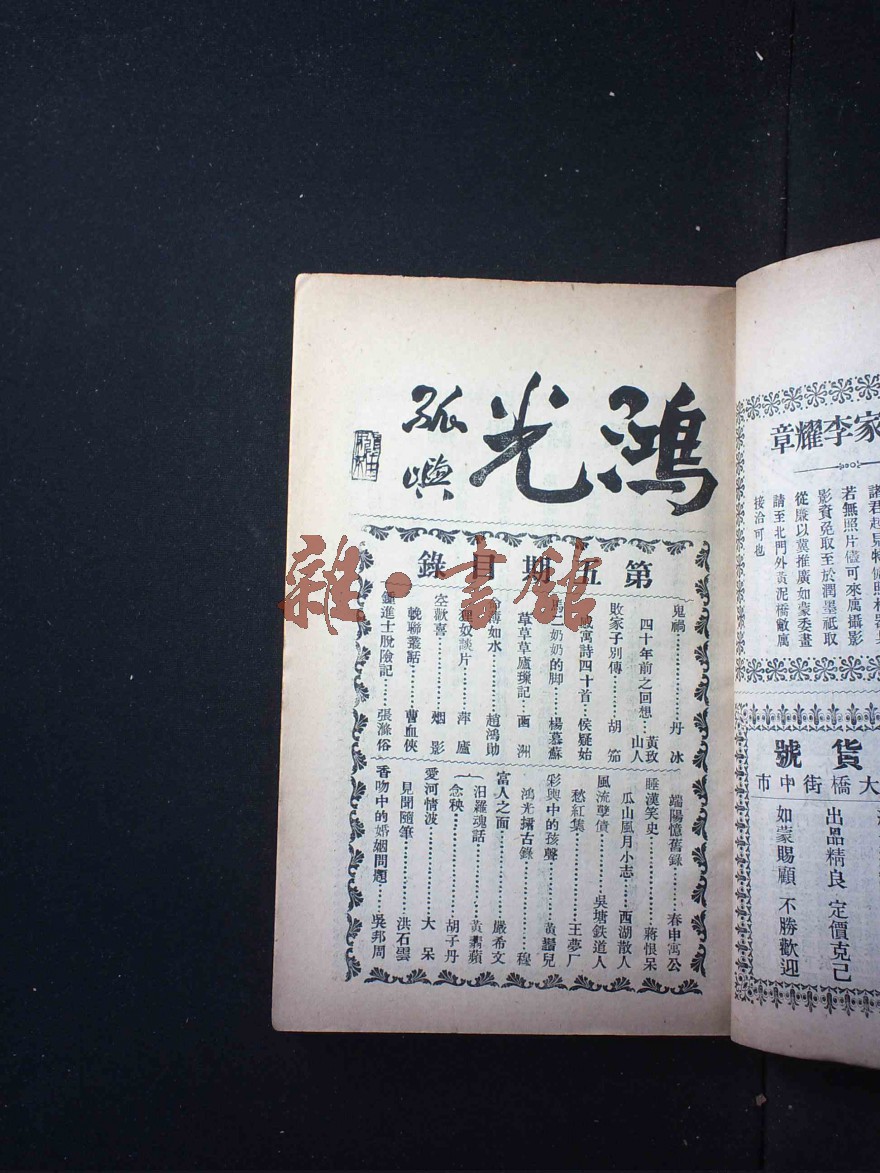 鴻光
孤嶼
第五期目錄
鬼禍………丹冰
四十年前之回想…黃玫山人
敗家子別傳………胡笳
寓詩四十首…侯疑始
馬二奶奶的脚…楊慕蘇
草草草廬瑣記…西洲
薄如水………趙鴻勛
狸奴談片………萍廬
空歡喜………烟影
輓聯叢話………曹血俠
鍾進士脫險記…張滌俗
端陽憶舊錄………春申寓公
睡漢笑史………蔣恨呆
瓜山風月小志…西湖散人
風流孽債………吳塘鉄道人
愁紅集………王夢厂
彩輿中的孩聲………黃蠻兒
鴻光摭古錄………穆
富人之面………嚴希文
汨羅魂話………黃翡蘋
念秧………胡子丹
愛河情波………大呆
見聞隨筆………洪石雲
香吻中的婚姻問題…吳邦周
家李耀章
諸君起見特備照相器具
若無照片儘可來厲攝影
影資免取至於潤墨祗取
從廉以冀推廣如蒙委畫
請至北門外黃泥橋敝厲
接洽可也
貨號
大橋街中市
出品精良 定價克己
如蒙賜顧 不勝歡迎
雜·書館